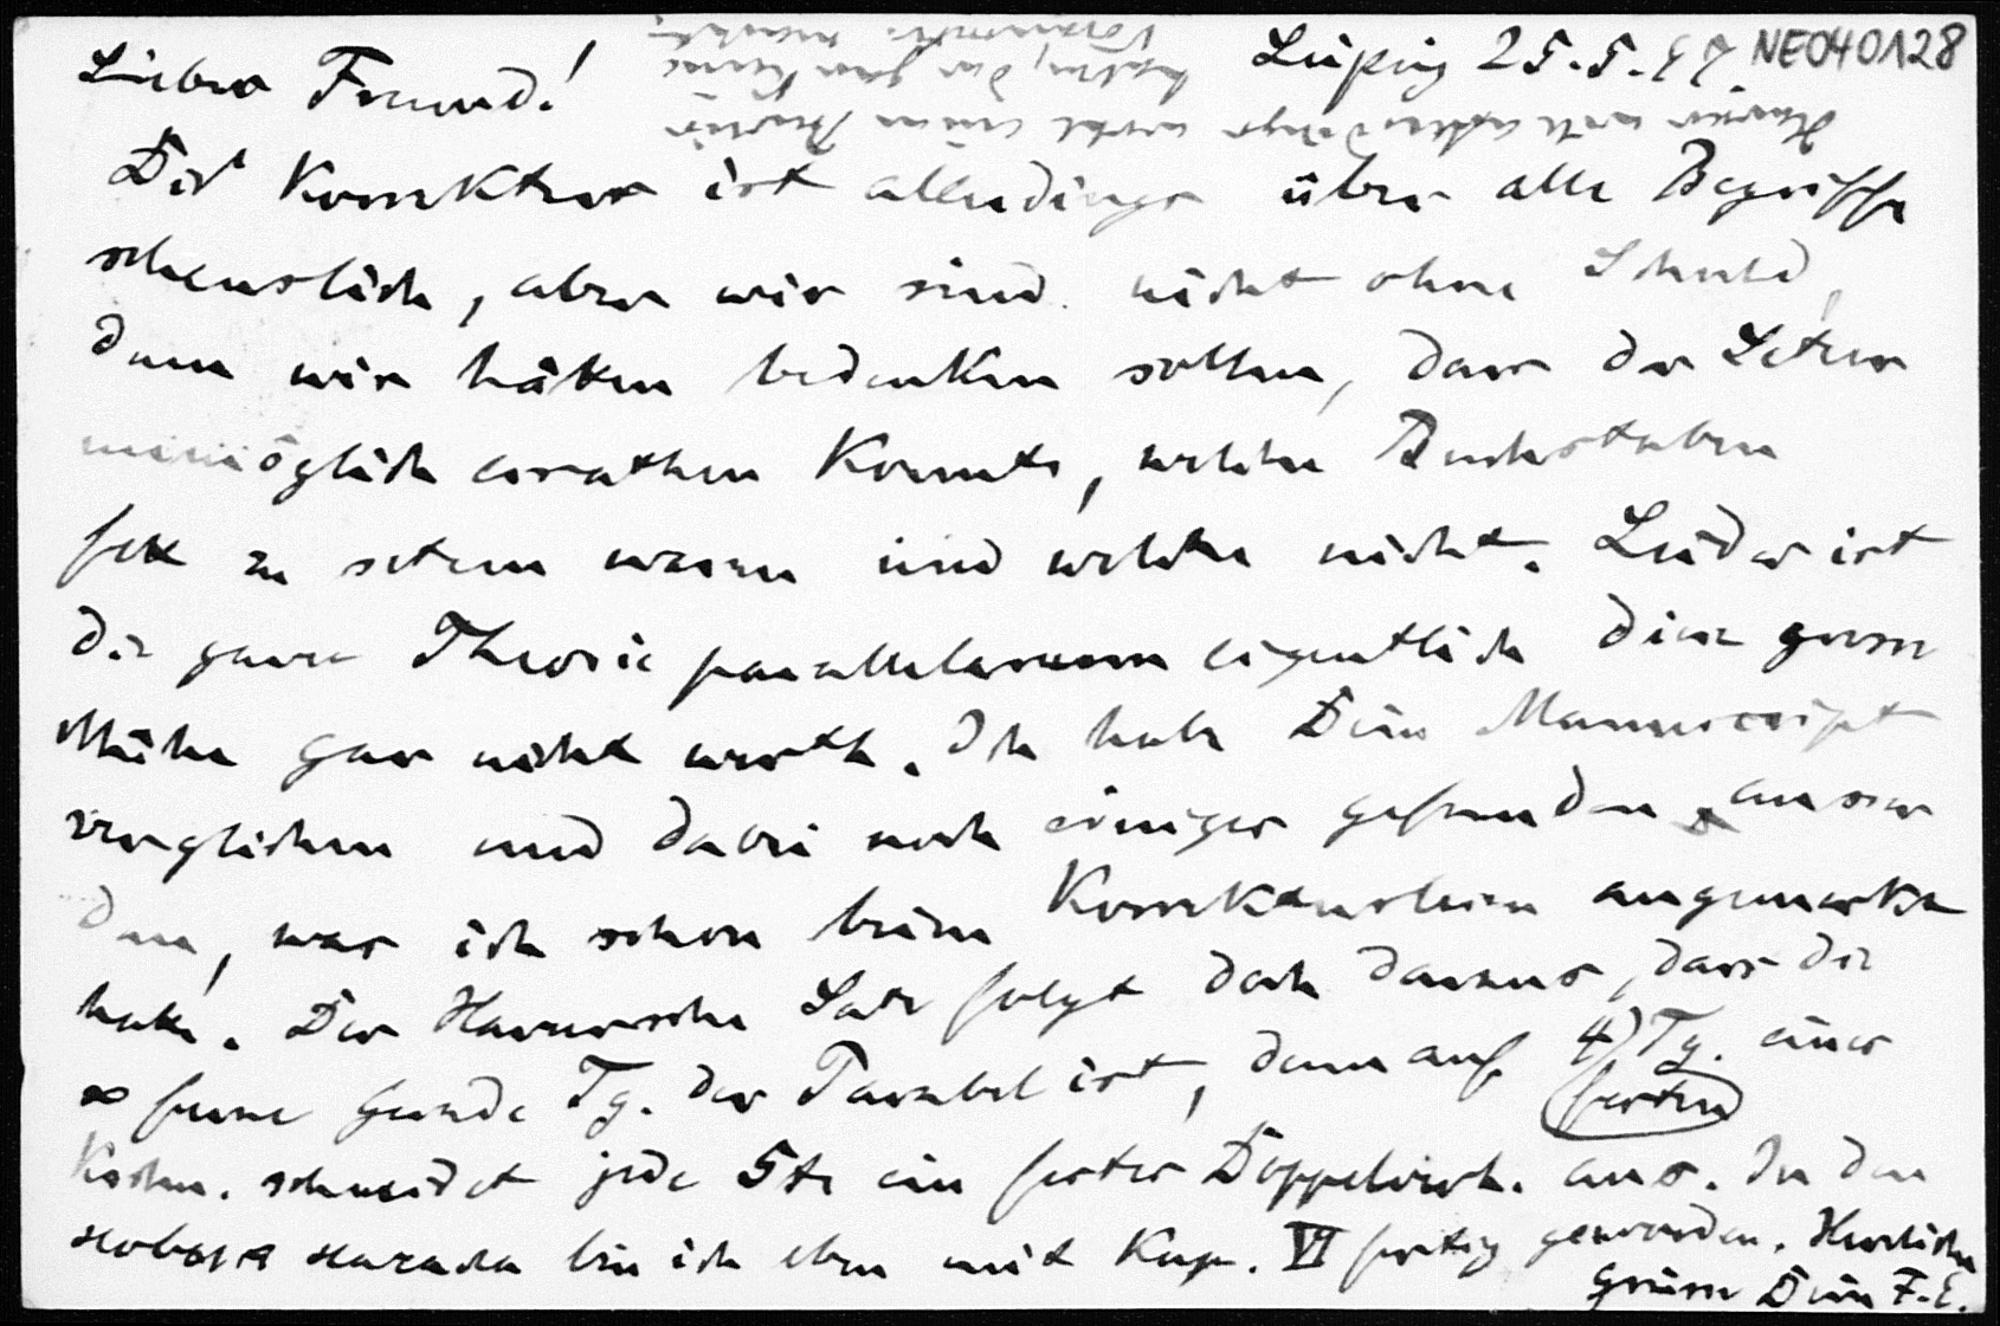 NE040128
Leipzig 25.5.97
Lieber Freund!
Die Korrektur ist allerdings über alle Begriffe
scheuslich, aber wir sind nicht ohne Schuld,
denn wir hätten bedenken sollen, dass der Setzer
unmöglich errathen konnte, welche Buchstaben
fett zu setzen waren und welche nicht. Leider ist
die ganze Theorie parallelarum eigentlich diese grosse
Mühe gar nicht werth. Ich habe Dein Manuscript
verglichen und dabei noch einiges gefunden ausser
dem, was ich schon beim Korrekturlesen angemerkt
hatte. Der Hauser'sche Satz folgt doch daraus, dass die
∞ ferne Gerade Tg. der Parabel ist, denn auf 4 Tg. eines
festen
Kschn. schneidet jede 5te ein festes Doppelverh. aus. In den
bin ich eben mit Kap. VI fertig geworden. Herzliche
Grüsse Dein F. E.
allerdings wohl einen Beweis
haben, der gar keine